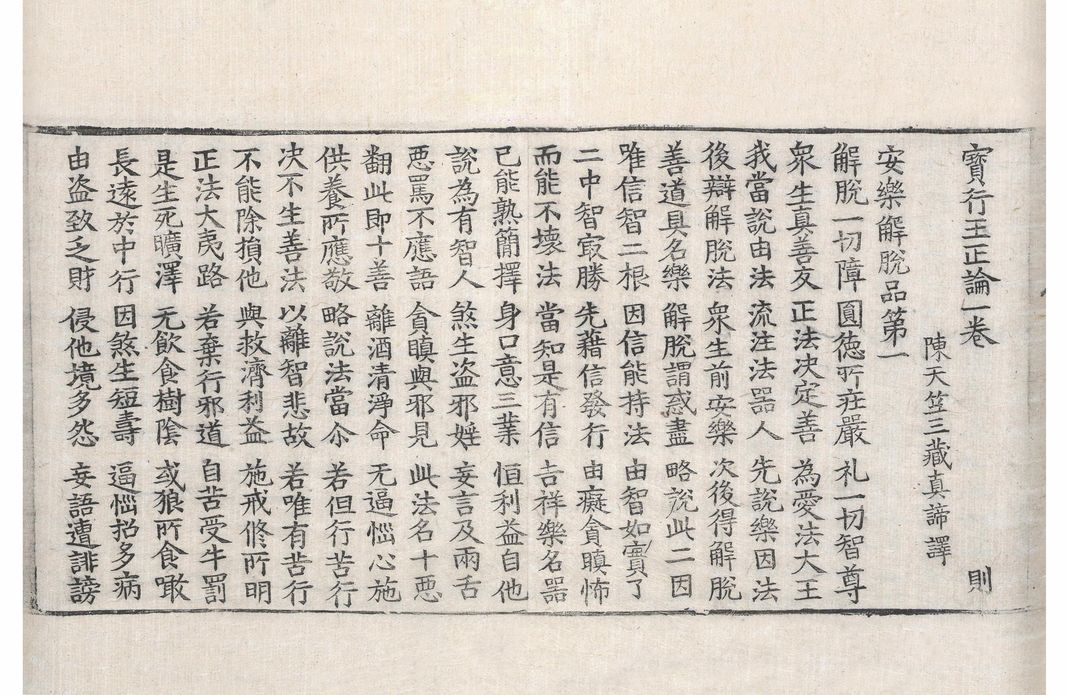 寶行王正論一卷 則
陳天竺三藏真諦譯
安樂解脫品第一
解脫一切障 圓德所莊嚴 礼一切智尊
眾生真善友 正法決定善 為愛法大王
我當說由法 流注法器人 先說樂因法
後辯解脫法 眾生前安樂 次後得解脫
善道具名樂 解脫謂惑盡 略說此二因
唯信智二根 因信能持法 由智如實了
二中智㝡勝 先藉信發行 由癡貪瞋怖
而能不壞法 當知是有信 吉祥樂名器
已能熟簡擇 身口意三業 恒利益自他
說為有智人 煞生盜邪婬 妄言及兩舌
惡罵不應語 貪瞋與邪見 此法名十惡
翻此即十善 離酒清淨命 无逼惱心施
供養所應敬 略說法當尒 若但行苦行
決不生善法 以離智悲故 若唯有苦行
不能除損他 與救濟利益 施戒修所明
正法大夷路 若棄行邪道 自苦受牛罰
是生死曠澤 无飲食樹陰 或狼所食噉
長遠於中行 因煞生短壽 逼惱招多病
由盜致乏財 侵他境多怨 妄語遭誹謗